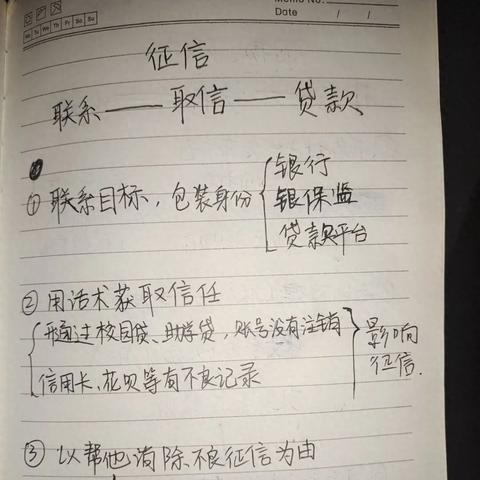 Memo No.
Date / /
Mo Tu We Th Fr Sa Su
征信
联系——取信——贷款
① 联系目标，包装身份
银行
银保监
贷款平台
② 用话术获取信任
通过校园贷、助学贷，账号没有注销
信用卡、花呗等有不良记录
影响
征信.
③ 以帮他消除不良征信为由